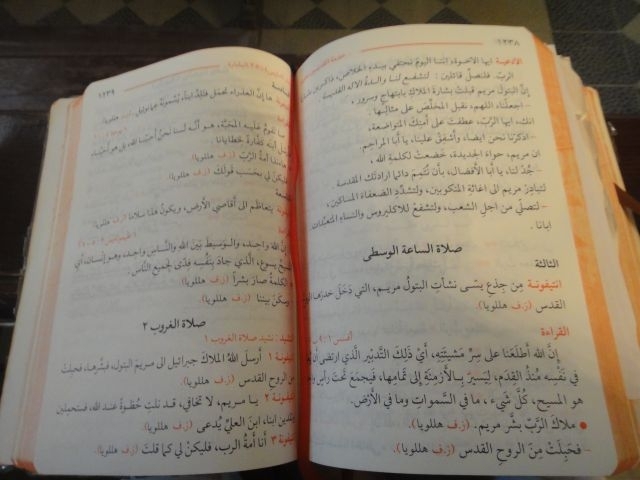 ١٢٣٨
الادعية ايها الاخوة، إننا اليوم نحتفي ببدء الخلاص،
الرب. فلنصلّي قائلين: لتشفع لنا والدة الاله القديسة.
إن البتول مريم قبلت بشارة الملاك بابتهاج وسرور،
– اجعلنا، اللهم، نقبل المخلّص على مثالها.
انك، ايها الرّب، عطفت على أمتك المتواضعة،
– اذكرنا نحن ايضا، وأشفق علينا، يا أبا المراحم.
ان مريم، حواء الجديدة، خضعت لكلمة الله،
– جُد لنا، يا أبا الأفضال، بأن نُتمم دائما ارادتك المقدسة.
لتبادر مريم الى اغاثة المنكوبين، ولتشدّد الضعفاء المساكين،
– لتصلّي من اجل الشعب، ولتشفع للاكليروس والنساء المتعبّدات.
ابانا.
صلاة الساعة الوسطى
الثالثة
انتيفونة مِن جِذعِ يسّى نشأتِ البتولُ مريم، التي دَخَلَ خدرها الروح
القدس (ز.ف هللويا).
القراءة افسس ١: ٩
إنَّ الله أَطلَعَنا على سِرِّ مَشيئَتِه، أيْ ذلك التدبير الَّذي ارتضى أن
في نَفْسِه مُنذُ القِدَم، ليَسيرَ بِالأزمِنَةِ إلى تَمامِها، فيجمَعَ تَحتَ رأسٍ
هو المسيح، كُلَّ شَيء، ما في السَّمواتِ وما في الأَرض.
• ملاك الرّبّ بشّر مريم. (ز.ف هللويا).
– فحَبِلَتْ مِنَ الروحِ القدس (ز.ف هللويا).
١٢٣٩
ها إنَّ العذراء تحمل فتلِدُ ابناً، يُسمّونه عمانوئيل. (ز.ف هللويا)
ما تقومُ عليهِ المحبّة، هو أنَّه لَسنا نحنُ أحبَبنا الله، بل هو أحبَّنا،
ابنَه كفّارةً لخطايانا.
هاءنذا أمةُ الرَّبّ (ز.ف هللويا)
فليكن لي بحسب قولك (ز.ف هللويا).
يتعاظم الى أقاصي الأرض، ويكونُ هذا سلاما (ز.ف هللويا)
إنَّ الله واحد، والوسيط بَينَ اللهِ والنّاس واحد، وهو إنسان، أي
المسيح يسوع، الَّذي جادَ بنَفْسِه فِدًى لِجميعِ النّاس.
الكلمةُ صارَ بشراً (ز.ف هللويا)
وسكن بيننا (ز.ف هللويا).
صلاة الغروب ٢
النشيد: نشيد صلاة الغروب ١
انتيفونة ١ أرسل اللهُ الملاكَ جبرائيل الى مريمَ البتول، فبشَّرها، فحبلتْ
من الروح القدس (ز.ف هللويا).
انتيفونة ٢ يا مريم، لا تخافي، قد نلتِ حُظوةً عند الله، فستحملين
وتلدين ابنا، ابنَ العليِّ يُدعى (ز.ف هللويا).
انتيفونة ٣ أنا أمةُ الرب، فليكُنْ لي كما قلتَ (ز.ف هللويا).